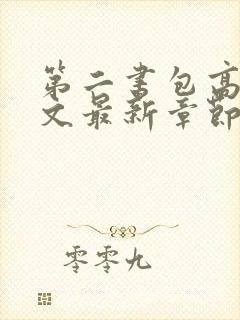 第二书包高
文最新章节
零零九